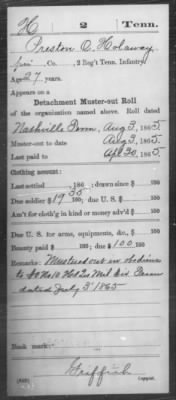 H 2 Tenn.
Preston C. Holaway
Co. , 2 Reg't Tenn. Infantry
Age 27 years.
Appears on a
Detachment Muster-out Roll
of the organization named above. Roll dated
Nashville Tenn, Aug 3, 1865
Muster-out to date Aug 3, 1865.
Last paid to Apl 30, 1865.
Clothing account:
Last settled , 186 ; drawn since $ 100
Due soldier $ 19 35/100; due U. S. $ 100
Am't for cloth'g in kind or money adv'd $ 100
Due U. S. for arms, equipments, &c., $ 100
Bounty paid $ 100; due $ 100 100
Remarks: Mustered out in obedience
to
dated July 3' 1865
Book mark:
Griffith
Copyist.